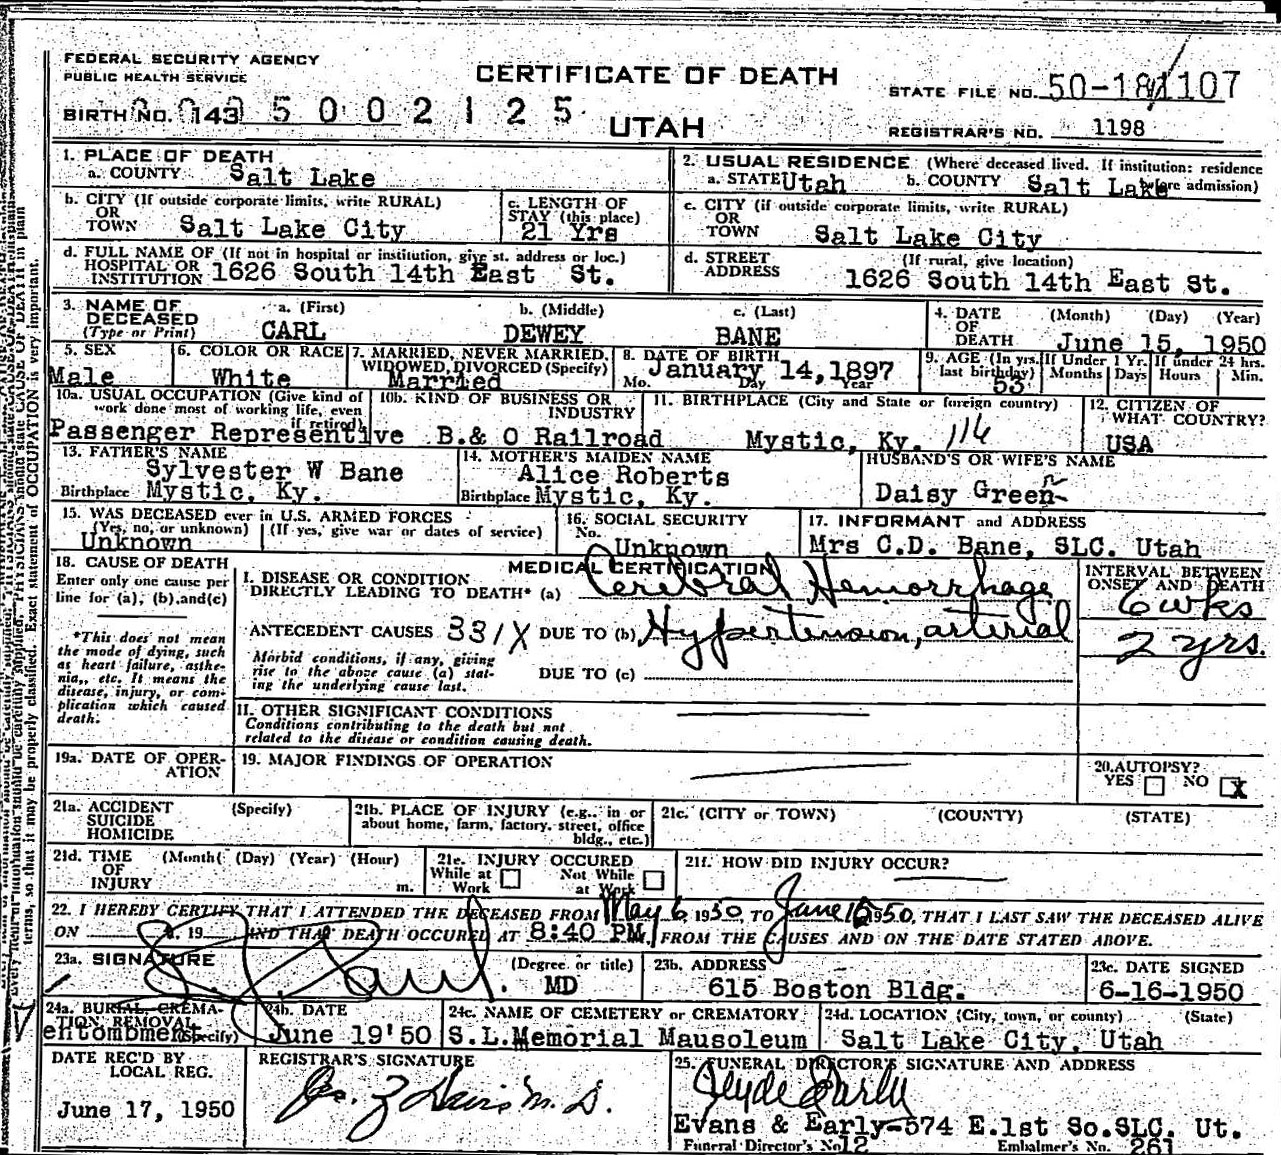 FEDERAL SECURITY AGENCY
PUBLIC HEALTH SERVICE
CERTIFICATE OF DEATH
STATE FILE NO. 50-181107
BIRTH NO. 143 5 0 0 2 1 2 5
UTAH
REGISTRAR'S NO. 1198
1. PLACE OF DEATH
a. COUNTY Salt Lake
2. USUAL RESIDENCE (Where deceased lived. If institution: residence before admission)
a. STATE Utah b. COUNTY Salt Lake
b. CITY (If outside corporate limits, write RURAL)
OR
TOWN Salt Lake City
c. LENGTH OF
STAY (this place)
21 Yrs
c. CITY (if outside corporate limits, write RURAL)
OR
TOWN Salt Lake City
d. FULL NAME OF (If not in hospital or institution, give st. address or loc.)
HOSPITAL OR
INSTITUTION 1626 South 14th East St.
d. STREET (If rural, give location)
ADDRESS 1626 South 14th East St.
3. NAME OF
DECEASED
(Type or Print)
a. (First) b. (Middle) c. (Last)
CARL DEWEY BANE
4. DATE (Month) (Day) (Year)
OF
DEATH June 15, 1950
5. SEX
Male
6. COLOR OR RACE
White
7. MARRIED, NEVER MARRIED,
WIDOWED, DIVORCED (Specify)
Married
8. DATE OF BIRTH
January 14, 1897
Mo. Day Year
9. AGE (In yrs. last birthday)
53
If Under 1 Yr.
Months Days
If under 24 hrs.
Hours Min.
10a. USUAL OCCUPATION (Give kind of
work done most of working life, even
if retired)
Passenger Representive
10b. KIND OF BUSINESS OR
INDUSTRY
B.& O Railroad
11. BIRTHPLACE (City and State or foreign country)
Mystic, Ky. 116
12. CITIZEN OF
WHAT COUNTRY?
USA
13. FATHER'S NAME
Sylvester W Bane
Birthplace Mystic, Ky.
14. MOTHER'S MAIDEN NAME
Alice Roberts
Birthplace Mystic, Ky.
HUSBAND'S OR WIFE'S NAME
Daisy Green
15. WAS DECEASED ever in U.S. ARMED FORCES
(Yes, no, or unknown) (If yes, give war or dates of service)
Unknown
16. SOCIAL SECURITY
No.
Unknown
17. INFORMANT and ADDRESS
Mrs C.D. Bane, SLC. Utah
18. CAUSE OF DEATH
Enter only one cause per
line for (a), (b), and (c)
*This does not mean
the mode of dying, such
as heart failure, asthe-
nia,, etc. It means the
disease, injury, or com-
plication which caused
death.
MEDICAL CERTIFICATION
I. DISEASE OR CONDITION
DIRECTLY LEADING TO DEATH* (a) Cerebral Hemorrhage
ANTECEDENT CAUSES 331X DUE TO (b) Hypertension, arterial
Morbid conditions, if any, giving
rise to the above cause (a) stat-
ing the underlying cause last.
DUE TO (c)
INTERVAL BETWEEN
ONSET AND DEATH
6 wks
2 yrs.
II. OTHER SIGNIFICANT CONDITIONS
Conditions contributing to the death but not
related to the disease or condition causing death.
19a. DATE OF OPER-
ATION
19. MAJOR FINDINGS OF OPERATION
20. AUTOPSY?
YES NO X
21a. ACCIDENT (Specify)
SUICIDE
HOMICIDE
21b. PLACE OF INJURY (e.g., in or
about home, farm, factory, street, office
bldg., etc.)
21c. (CITY or TOWN) (COUNTY) (STATE)
21d. TIME (Month( (Day) (Year) (Hour)
OF
INJURY m.
21e. INJURY OCCURED
While at Work Not While at Work
21f. HOW DID INJURY OCCUR?
22. I HEREBY CERTIFY THAT I ATTENDED THE DECEASED FROM May 6, 1950, TO June 15 1950, THAT I LAST SAW THE DECEASED ALIVE
ON , 19 AND THAT DEATH OCCURED AT 8:40 PM, FROM THE CAUSES AND ON THE DATE STATED ABOVE.
23a. SIGNATURE
(Degree or title)
MD
23b. ADDRESS
615 Boston Bldg.
23c. DATE SIGNED
6-16-1950
24a. BURIAL, CREMA-
TION, REMOVAL
(Specify)
entombment
24b. DATE
June 19'50
24c. NAME OF CEMETERY or CREMATORY
S.L.Memorial Mausoleum
24d. LOCATION (City, town, or county) (State)
Salt Lake City, Utah
DATE REC'D BY
LOCAL REG.
June 17, 1950
REGISTRAR'S SIGNATURE
M.D.
25. FUNERAL DIRECTOR'S SIGNATURE AND ADDRESS
Clyde Early
Evans & Early-574 E.1st So.SLC. Ut.
Funeral Director's No. 12 Embalmer's No. 261